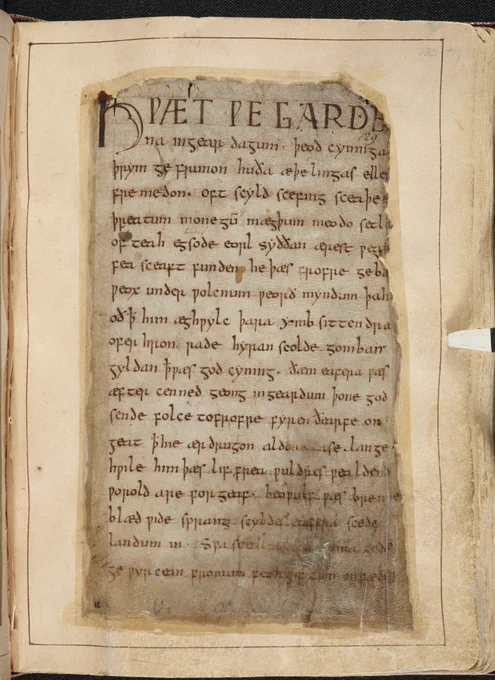 HǷÆT ǷE GARDE
na ingear dagum. þeod cyninga
þrym ge frunon huða æþelingas elle
fremedon. oft scyld scefing sceaþe
þreatum monegū mægþum meodo setl
of teah egsode eorl syððan ærest
fea sceaft funden he þæs frofre geba
ƿeox under ƿolcnum ƿeorð myndum þah
oð ꝥ him æghƿylc þara ymb sittendra
ofer hron rade hyran scolde gomban
gyldan ꝥ ƿæs god cyning. ðæm eafera ƿæs
æfter cenned geong ingeardum þone god
sende folce tofrofre fyren ðearfe on
geat ꝥ hie ær drugon aldor ase. lange
hƿile him þæs lif frea ƿuldres ƿealdend
ƿorold are for geaf. beoƿulf ƿæs breme
blæd ƿide sprang scyldes eafera scede
landum in. Sƿa ma gode
ge ƿyrcean fromum feoh giftum on fæder